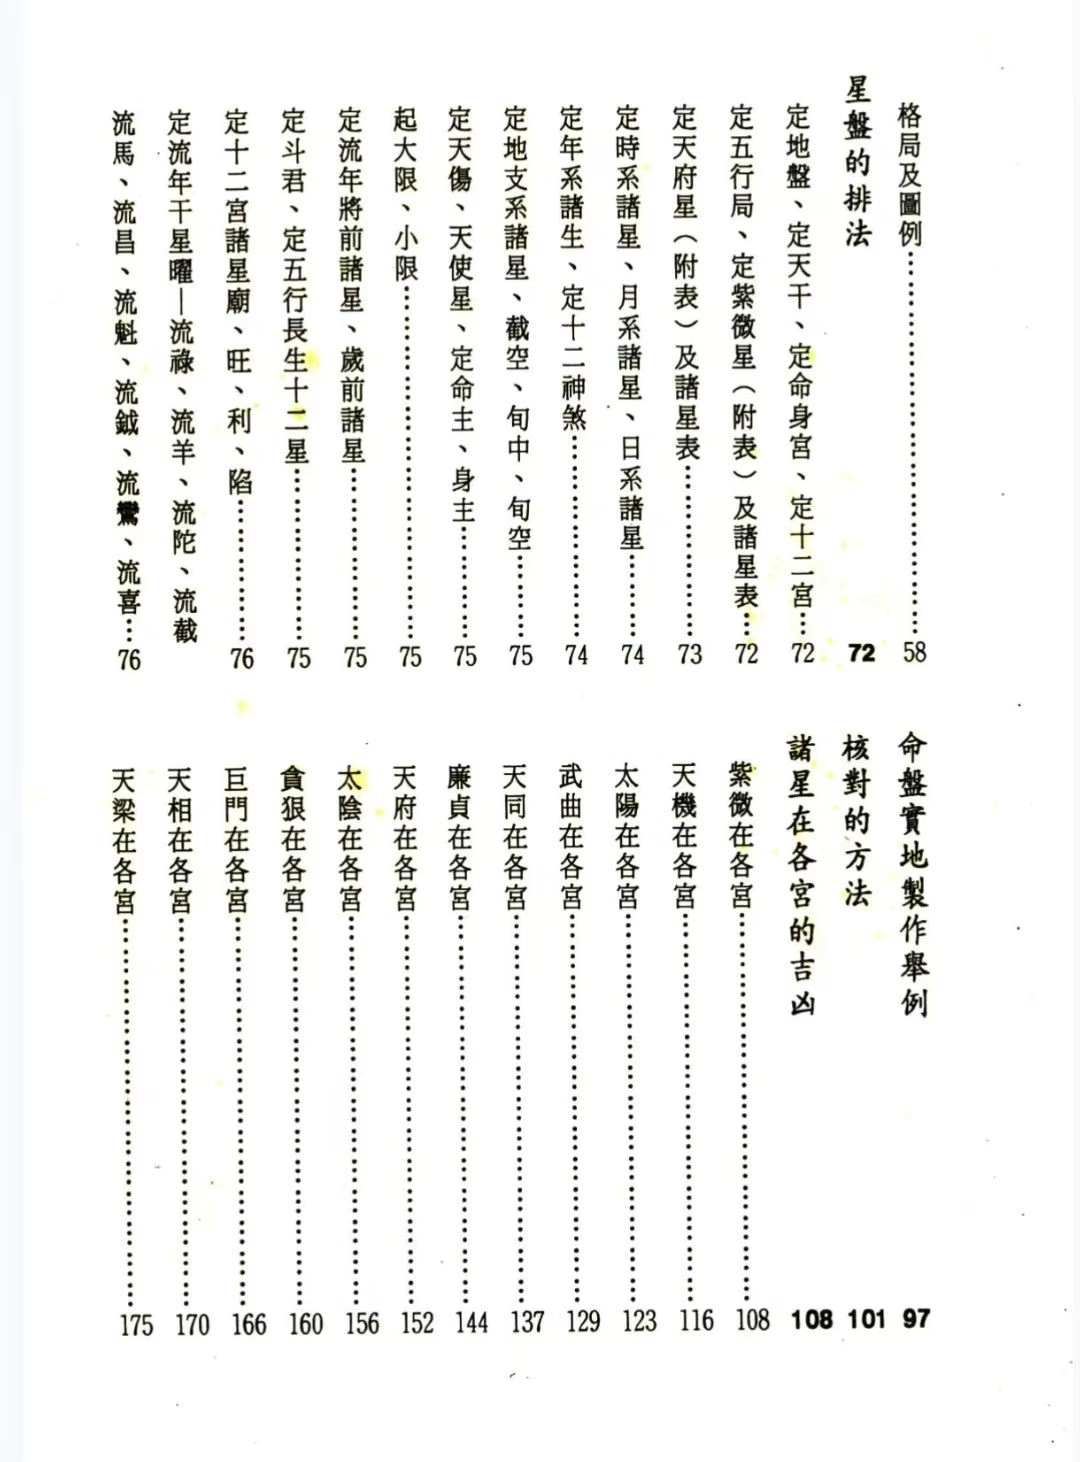 格局及圖例……58
星盤的排法 72
定地盤、定天干、定命身宮、定十二宮…72
定五行局、定紫微星（附表）及諸星表…72
定天府星（附表）及諸星表……73
定時系諸星、月系諸星、日系諸星……74
定年系諸生、定十二神煞……74
定地支系諸星、截空、旬中、旬空……75
定天傷、天使星、定命主、身主……75
起大限、小限……75
定流年將前諸星、歲前諸星……75
定斗君、定五行長生十二星……75
定十二宮諸星廟、旺、利、陷……76
定流年干星曜—流祿、流羊、流陀、流截
流馬、流昌、流魁、流鉞、流鸞、流喜…76
命盤實地製作舉例 97
核對的方法 101
諸星在各宮的吉凶 108
紫微在各宮……108
天機在各宮……116
太陽在各宮……123
武曲在各宮……129
天同在各宮……137
廉貞在各宮……144
天府在各宮……152
太陰在各宮……156
貪狠在各宮……160
巨門在各宮……166
天相在各宮……170
天梁在各宮……175